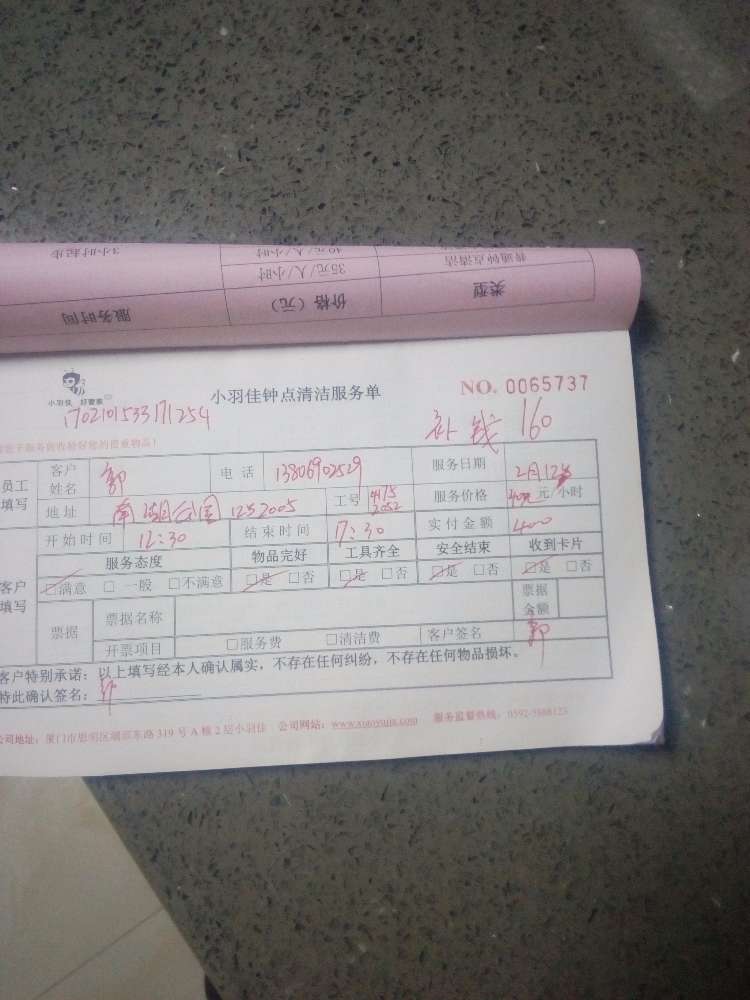 普通钟点清洁 40元/人/小时 3小时起步
35元/人/小时
类型 价格（元） 服务时间
小羽佳 好管家
小羽佳钟点清洁服务单 NO. 0065737
1702101533171254
补钱 160
员工填写 客户姓名 郭 电话 13806902529 服务日期 2月12
地址 南湖公园 125 2005 工号 4175 2052 服务价格 40 元/小时
开始时间 12:30 结束时间 17:30 实付金额 400
客户填写 服务态度 物品完好 工具齐全 安全结束 收到卡片
□满意 □一般 □不满意 □是 □否 □是 □否 □是 □否 □是 □否
票据 票据名称 票据金额
开票项目 □服务费 □清洁费 客户签名 郭
客户特别承诺：以上填写经本人确认属实，不存在任何纠纷，不存在任何物品损坏。
特此确认签名：
公司地址：厦门市思明区湖滨东路 319 号 A 幢 2 层小羽佳 公司网站：www.xiaoyujia.com 服务监督热线：0592-5888123